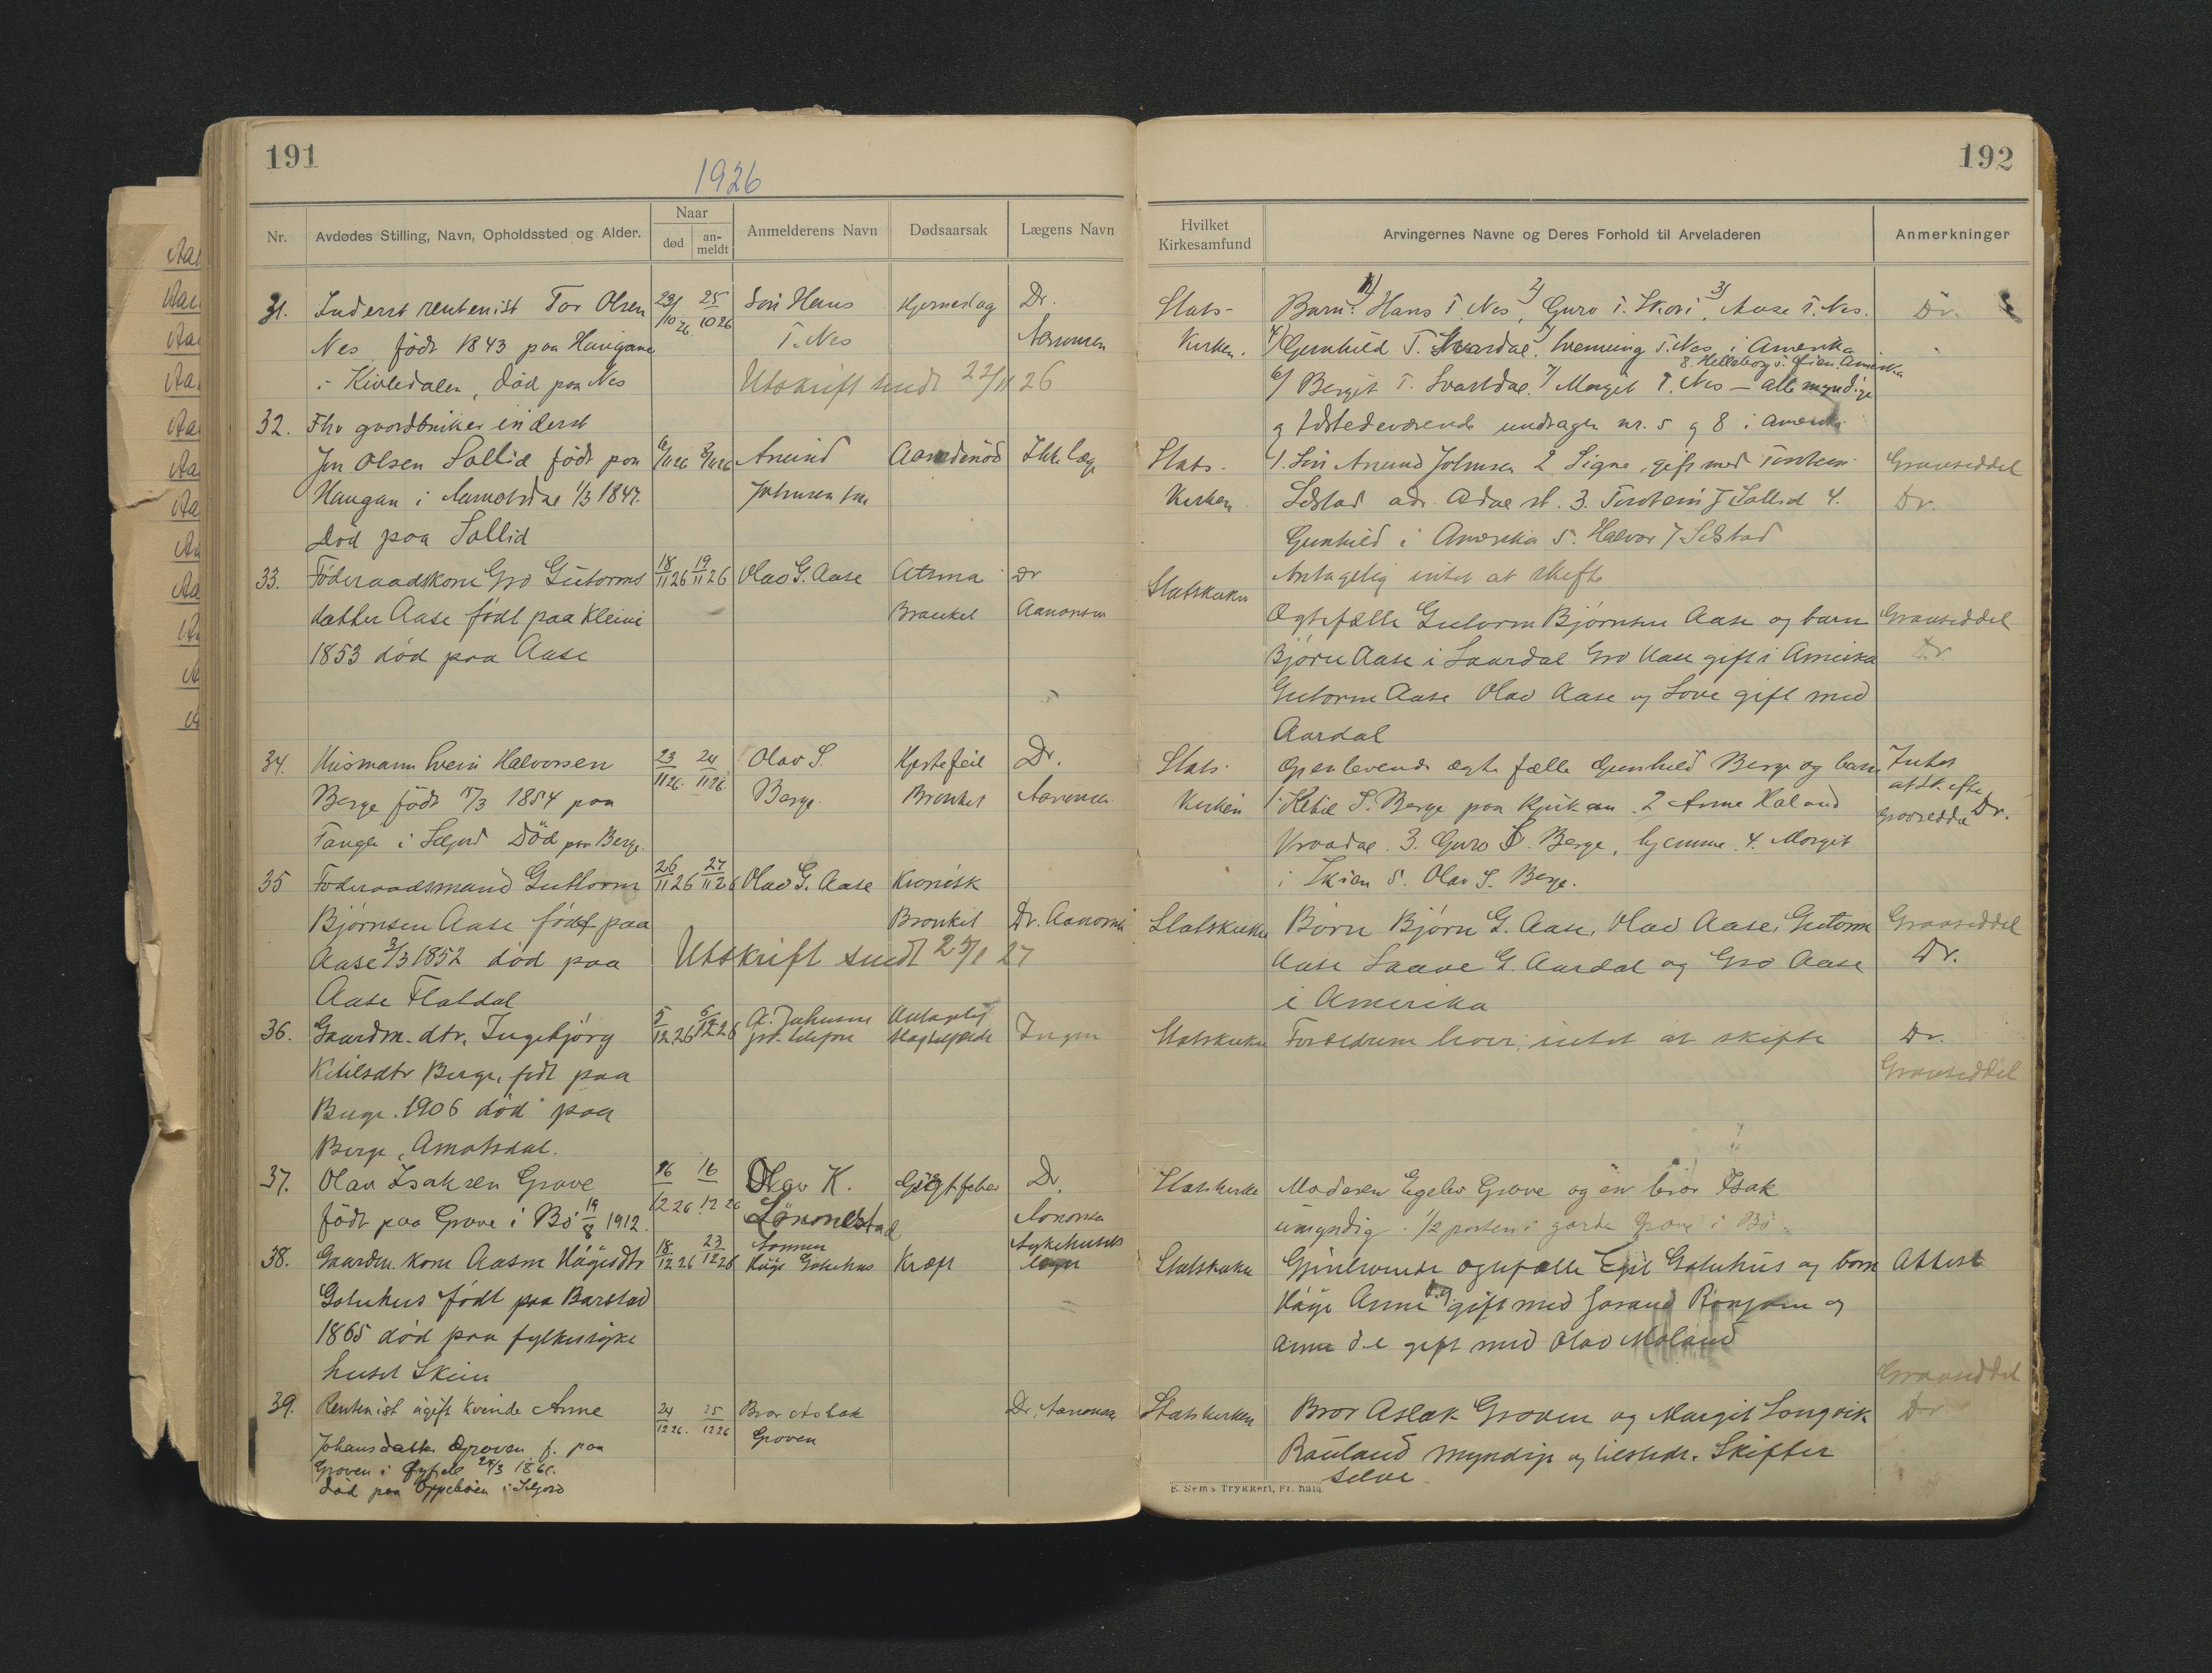 191
1926
Nr.
Avdødes Stilling, Navn, Opholdssted og Alder.
Naar
død
an-
meldt
Anmelderens Navn
Dødsaarsak
Lægens Navn
31. Inderst rentenist Tor Olsen 23/10 26 25/10 26 Søn Hans Hjerneslag Dr.
Nes født 1843 paa Haugane T. Nes Aanonsen
i Kivledalen, død paa Nes Utskrift sendt 22/11 26
32. Fhv gaardbruker inderst
Jon Olsen Sollid født paa 6/11 26 8/11 26 Anund Ikke læge
Haugan i 1/3 1847. Johnsen
Død paa Sollid
33. Föderaadskone Gro Gutorms 18/11 26 19/11 26 Olav G. Aase Atsma Dr
datter Aase født paa Kleivi Bronket Aanonsen
1853 død paa Aase
34. Husmann Svein Halvorsen 23/11 26. 24/11 26. Olav S. Hjertefeil Dr.
Berge født 1854 paa Berge. Bronket Aanonsen
i Seljord Død paa Berge.
35 Foderaadsmand Guttorm 26/11 26 27/11 26 Olav G. Aase Kronisk
Bjørnsen Aase født paa Bronkit Dr. Aanonsen
Aase 3/3 1852 død paa Utskrift sendt 27
Aase Flatdal
36. Gaardm. dtr. Ingebjörg 5/12 26 12 26 Antagelig Ingen
Ketilsdtr Berge, født paa
Berge. 1906 död paa
Berge, Amotsdal.
37. Olav Isaksen Grave 16/12 26 16/12 26 Olav K. Gigtfeber Dr.
født paa Grave i Bø 19/8 1912. Lönnestad Aanonsen
38. Gaardm. kone Aasne Hågesdtr 18/12 26 23/12 26 Sønnen Kræft Sykehusets
Gotuhus født paa Barstad Håge Gotuhus læge
1865 død paa fylkessyke
huset Skien
39. Rentenist ugift kvinde Anne 24/12 26. 25/12 26 Bror Aslak Dr. Aanonsen
Johansdatter Groven f. paa Groven
Groven i Øyfjell
død paa Oppebøen i Seljord
192
Hvilket
Kirkesamfund
Arvingernes Navne og Deres Forhold til Arveladeren
Anmerkninger
Stats- Barn: 1) Hans T. Nes, 2) Guro T. Skori, 3) Aase T. Nes. Dr.
Kirken. 4) Gunhild T. Svardal. 5) Svenning T. Nes i Amerika
8. Helleborg i Amerika
6) Bergit T. Svartdal. 7) Margit T. Nes — alle myndige
og tilstedeværende undtagen nr. 5 og 8 i Amerika
Stats- 1. Søn Anund Johnsen 2 Signe, gift med Gravseddel
Kirken 3. Torstein J Sollid 4. Dr.
Gunhild i Amerika 5. Halvor J
Antagelig intet at skifte
Statskirken
Ægtefælle Gutorm Bjørnsen Aase og barn Gravseddel
Bjørn Aase i Laardal Gro Aase gift i Amerika Dr
Gutorm Aase Olav Aase og Love gift med
Aardal
Stats- Gjenlevende ægtefælle Gunhild Berge og barn Intet
Kirken 1. Ketil S. Berge paa Rjukan. 2 Anne Haland at skifte
Vraadal. 3. Guro S. Berge, hjemme. 4. Margit Gravseddel Dr.
i Skien 5. Olav S. Berge.
Statskirken Börn Bjørn G. Aase, Olav Aase, Gutorm Gravseddel
Aase Laave G. Aardal og Gro Aase Dr.
i Amerika
Statskirken Foreldrene lever. intet at skifte Dr.
Gravseddel
Statskirke Moderen Egelev Grave og en bror Isak
umyndig. 1/2 parten i garden Grave i Bø
Statskirken Gjenlevende ægtefælle Egil Gotuhus og born Attest
Håge Anne gift med og
Anne d.e gift med Olav Moland
Gravseddel
Statskirken Bror Aslak Groven og Margit Longvik Dr
Rauland myndige og tilstede. Skifter
selve
E. Sem's Trykkeri, Fr.hald.